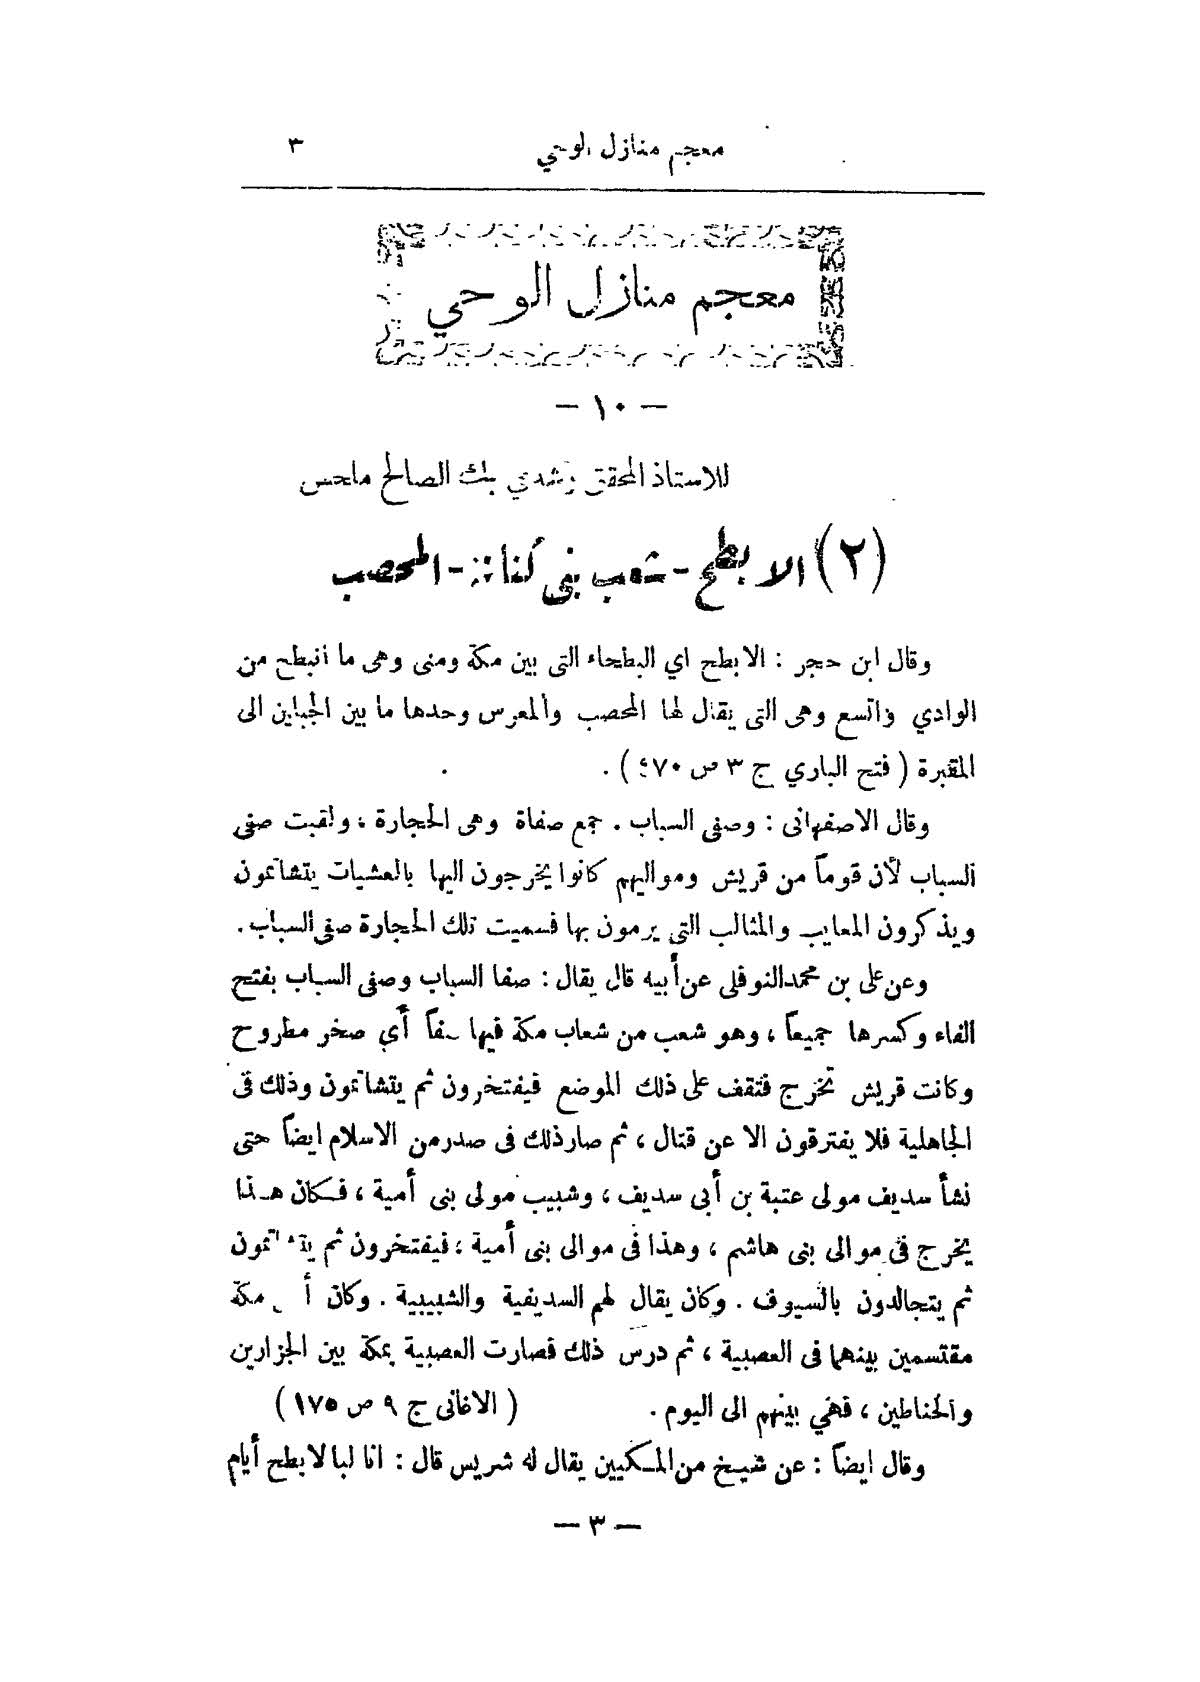 معجم منازل الوحي ٣
معجم منازل الوحي
— ١٠ —
للاستاذ المحقق رشدي بك الصالح ملحس
(٢) الابطح - شعب بني كنانة - المحصب
وقال ابن حجر : الابطح اي البطحاء التى بين مكة ومنى وهى ما انبطح من
الوادي واتسع وهى التى يقال لها المحصب والمعرس وحدها ما بين الجبلين الى
المقبرة ( فتح الباري ج ٣ ص ٤٧٠ ) .
وقال الاصفهانى : وصفى السباب . جمع صفاة وهى الحجارة ، ولقبت صفى
السباب لأن قوماً من قريش ومواليهم كانوا يخرجون اليها بالعشيات يتشاتمون
ويذكرون المعايب والمثالب التى يرمون بها فسميت تلك الحجارة صفى السباب .
وعن على بن محمد النوفلى عن أبيه قال يقال : صفا السباب وصفى السباب بفتح
الفاء وكسرها جميعاً ، وهو شعب من شعاب مكة فيها صفاً أي صخر مطروح
وكانت قريش تخرج فتقف على ذلك الموضع فيفتخرون ثم يتشاتمون وذلك فى
الجاهلية فلا يفترقون الا عن قتال ، ثم صار ذلك فى صدر من الاسلام ايضاً حتى
نشأ سديف مولى عتبة بن أبى سديف ، وشبيب مولى بنى أمية ، فكان هذا
يخرج فى موالى بنى هاشم ، وهذا فى موالى بنى أمية ، فيفتخرون ثم يتشاتمون
ثم يتجالدون بالسيوف . وكان يقال لهم السديفية والشبيبية . وكان مكة
مقتسمين بينهما فى العصبية ، ثم درس ذلك فصارت العصبية بمكة بين الجزارين
والحناطين ، فهي بينهم الى اليوم . ( الاغانى ج ٩ ص ١٧٥ )
وقال ايضاً : عن شيخ من المكيين يقال له شريس قال : انا لبالابطح أيام
— ٣ —